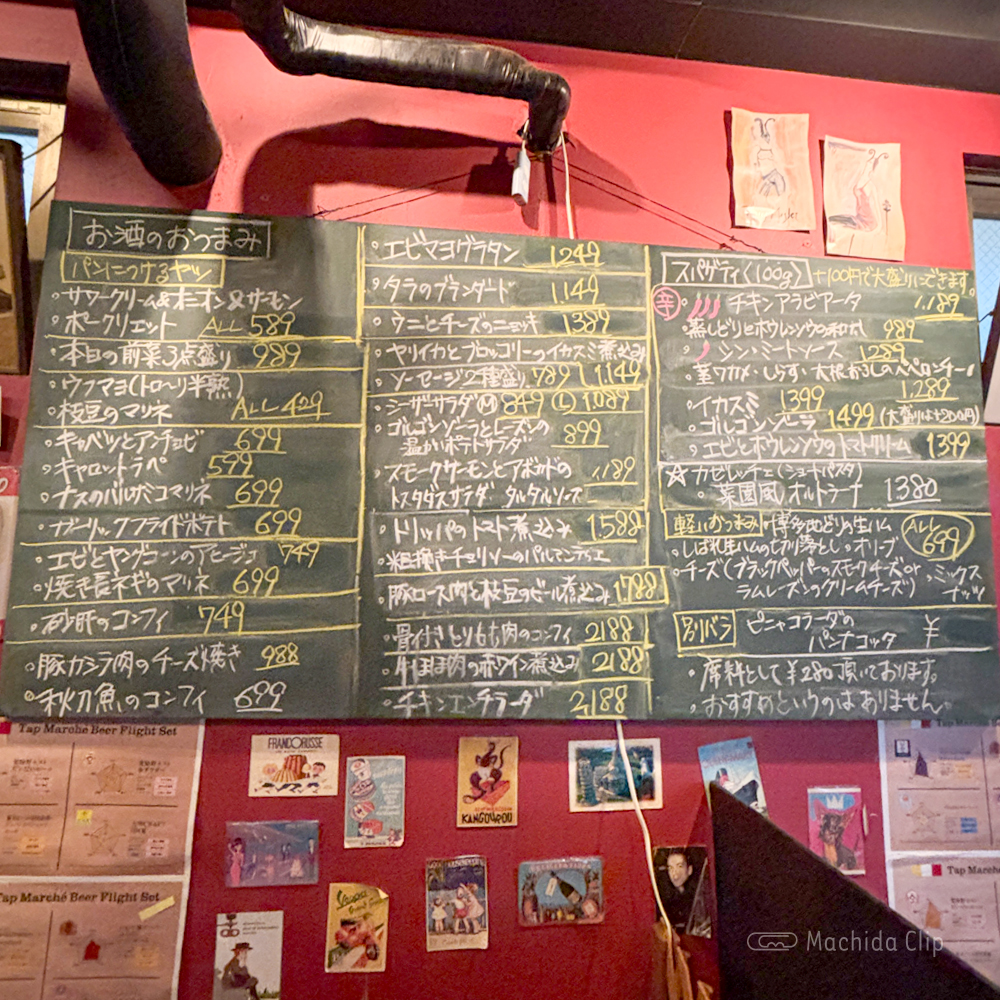 お酒のおつまみ
パンにつけるヤツ
サワークリーム&オニオン&サーモン
ポークリエット ALL 589
本日の前菜3点盛り 989
ウフマヨ(トロ〜リ半熟)
枝豆のマリネ ALL 429
キャベツとアンチョビ 699
キャロットラペ 599
ナスのバルサミコマリネ 699
ガーリックフライドポテト 699
エビとヤングコーンのアヒージョ 749
焼き長ネギのマリネ 699
砂肝のコンフィ 749
豚カシラ肉のチーズ焼き 988
秋刀魚のコンフィ 699
エビマヨグラタン 1249
タラのブランダード 1149
ウニとチーズのニョッキ 1389
ヤリイカとブロッコリーのイカスミ煮込み
ソーセージ2種盛り 789 1149
シーザーサラダ Ⓜ 849 Ⓛ 1089
ゴルゴンゾーラとレーズンの
温かいポテトサラダ 899
スモークサーモンとアボカドの 1189
トスタダスサラダ タルタルソース
トリッパのトマト煮込み 1588
粗挽きチョリソーのパルマンティエ
豚ロース肉と枝豆のビール煮込み 1788
骨付きとりもも肉のコンフィ 2188
牛ほほ肉の赤ワイン煮込み 2188
チキンエンチラーダ 2188
スパゲティ(100g) +100円で大盛りにできます。
辛 チキンアラビアータ 1189
蒸しどりとホウレンソウの和風 989
シン・ミートソース 1289
茎ワカメ・しらす・大根おろしのペペロンチーノ
1289
イカスミ 1399
ゴルゴンゾーラ 1499 (大盛りは+200円)
エビとホウレンソウのトマトクリーム 1399
☆カビレッチェ(ショートパスタ)
菜園風オルトラーナ 1380
軽いおつまみ 博多地どりの生ハム ALL 699
しばれ生ハムの切り落とし オリーブ
チーズ(ブラックペッパーのスモークチーズor
ラムレーズンのクリームチーズ) ミックスナッツ
別バラ ピニャコラーダの
パンナコッタ ¥
席料として¥280頂いております。
おすすめというのはありません。
Tap Marché Beer Flight Set
Tap Marché Beer Flight Set
Tap March
Tap Marché
FRANCORUSSE
KANGOUROU
Vespa
Machida Clip